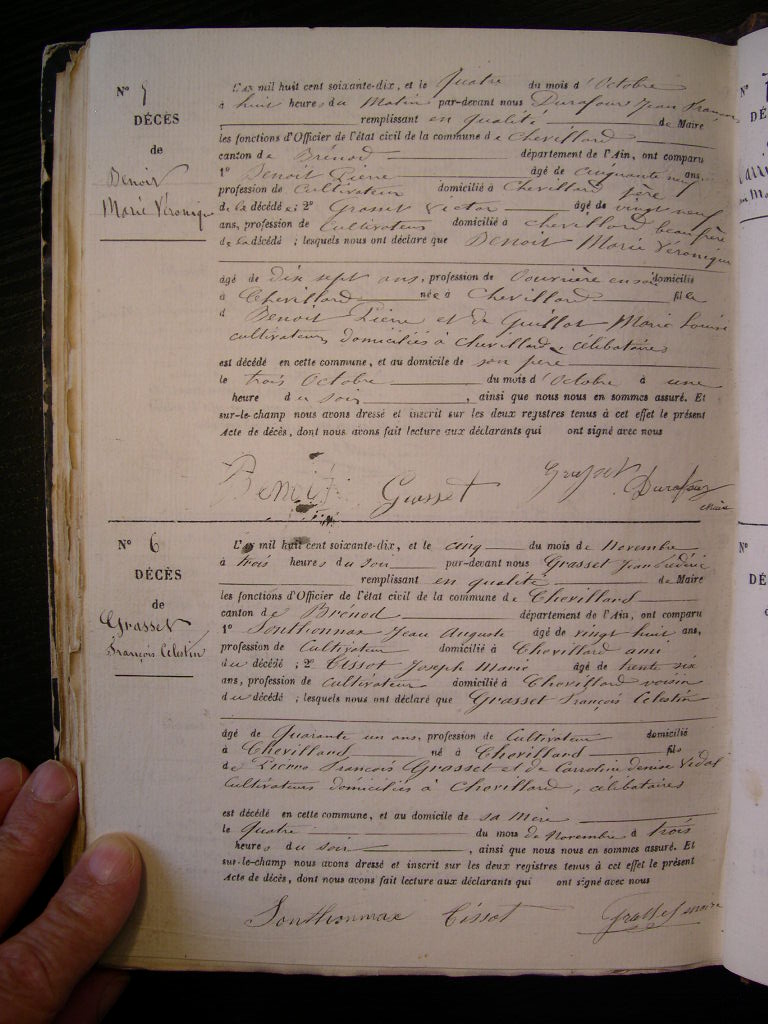 N° 5
DÉCÈS
de
Benoit
Marie Véronique
L'an mil huit cent soixante-dix, et le quatre du mois d'Octobre
à huit heures du Matin par-devant nous Durafour Jean François
remplissant en qualité de Maire
les fonctions d'Officier de l'état civil de la commune de Chevillard
canton de Brénod département de l'Ain, ont comparu
1° Benoit Pierre âgé de cinquante neuf ans,
profession de Cultivateur domicilié à Chevillard père
de la décédé et 2° Grasset Victor âgé de vingt neuf
ans, profession de Cultivateur domicilié à Chevillard beau frère
de la décédé ; lesquels nous ont déclaré que Benoit Marie Véronique
âgé de dix sept ans, profession de ouvrière en soie domicilié
à Chevillard née à Chevillard fille
d Benoit Pierre et de Guillot Marie Louise
cultivateurs domiciliés à Chevillard, célibataires
est décédé en cette commune, et au domicile de son père
le trois Octobre du mois d'Octobre à une
heure du soir , ainsi que nous nous en sommes assuré. Et
sur-le-champ nous avons dressé et inscrit sur les deux registres tenus à cet effet le présent
Acte de décès, dont nous avons fait lecture aux déclarants qui ont signé avec nous
Benoit Grasset Grasset Durafour
maire
N° 6
DÉCÈS
de
Grasset
François Célestin
L'an mil huit cent soixante-dix, et le cinq du mois de Novembre
à trois heures du soir par-devant nous Grasset Jean Frédéric
remplissant en qualité de Maire
les fonctions d'Officier de l'état civil de la commune de Chevillard
canton de Brénod département de l'Ain, ont comparu
1° Sonthonnax Jean Auguste âgé de vingt huit ans,
profession de Cultivateur domicilié à Chevillard ami
du décédé ; 2° Tissot Joseph Marie âgé de trente six
ans, profession de Cultivateur domicilié à Chevillard voisin
du décédé ; lesquels nous ont déclaré que Grasset François Célestin
âgé de Quarante un ans, profession de Cultivateur domicilié
à Chevillard né à Chevillard fils
de Pierre François Grasset et de Carroline denise Vidal
Cultivateurs domiciliés à Chevillard, célibataires
est décédé en cette commune, et au domicile de sa Mère
le Quatre du mois de Novembre à trois
heures du soir , ainsi que nous nous en sommes assuré. Et
sur-le-champ nous avons dressé et inscrit sur les deux registres tenus à cet effet le présent
Acte de décès, dont nous avons fait lecture aux déclarants qui ont signé avec nous
Sonthonnax Tissot Grasset maire